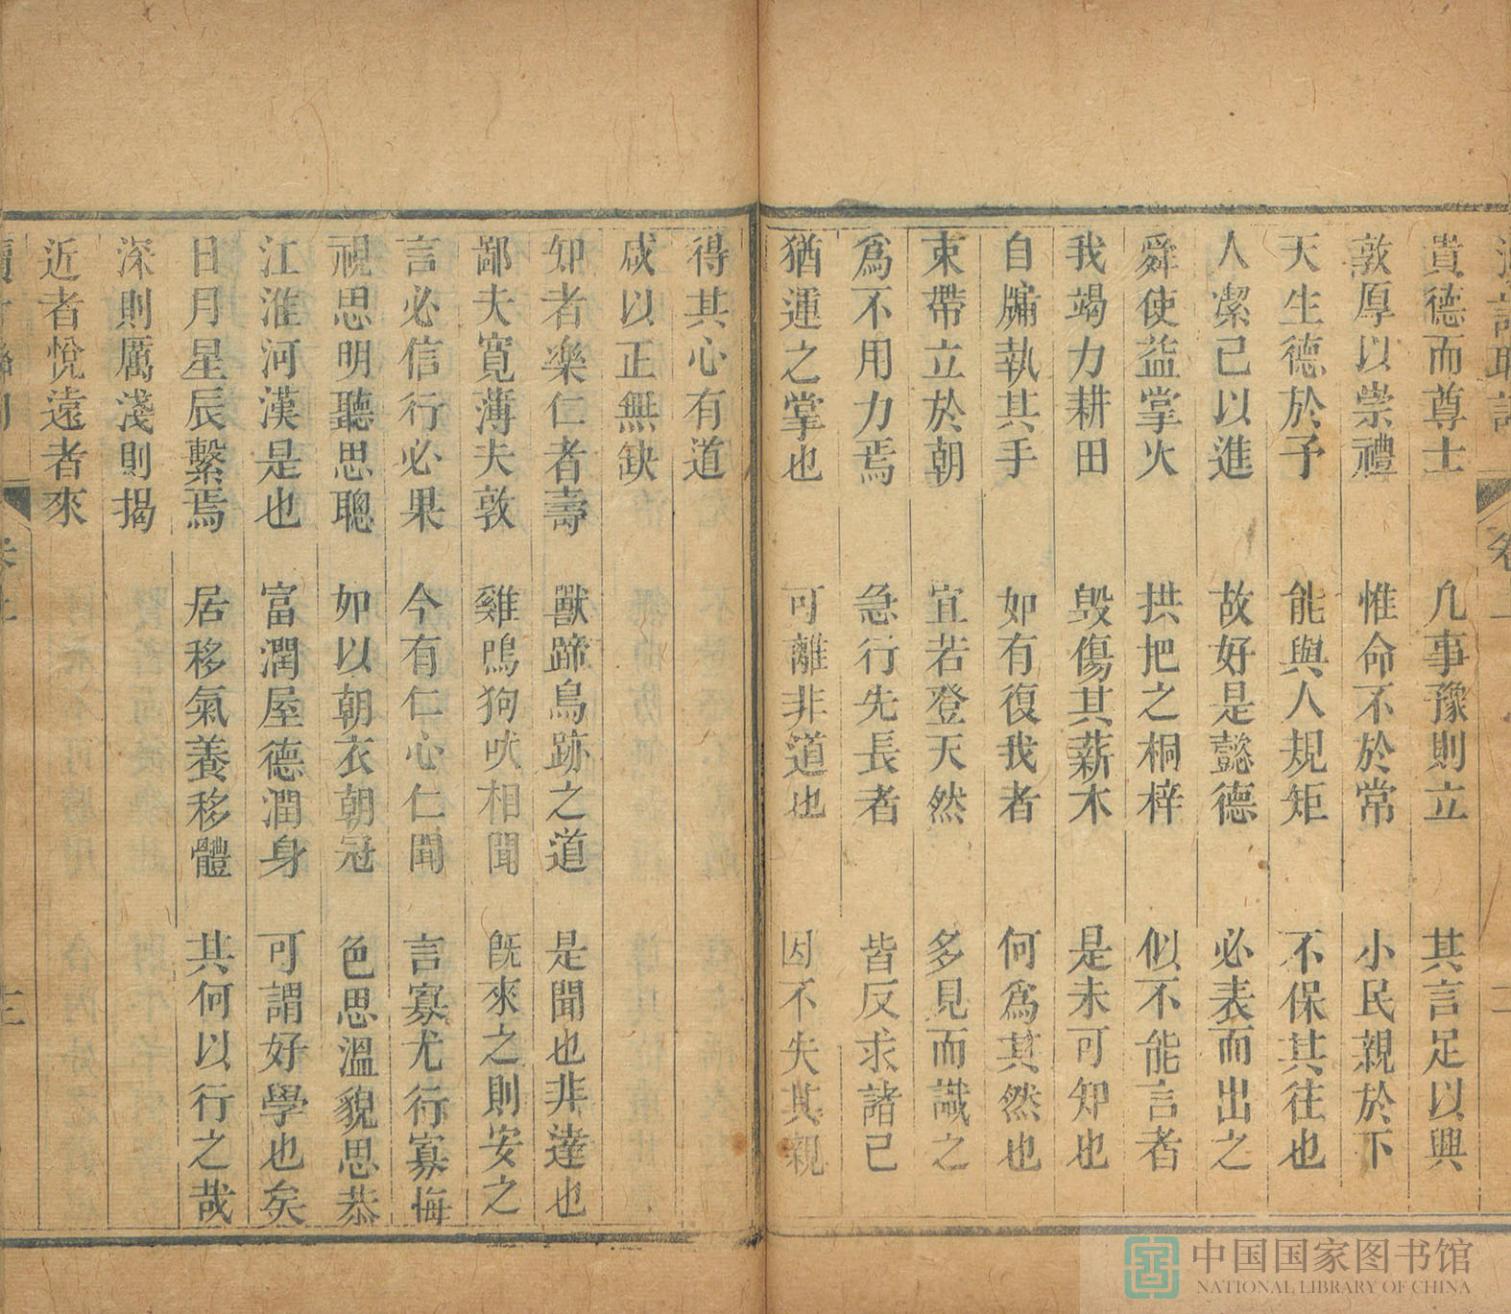 貴德而尊士 凡事豫則立 其言足以興
敦厚以崇禮 惟命不於常 小民親於下
天生德於予 能與人規矩 不保其往也
人潔己以進 故好是懿德 必表而出之
舜使益掌火 拱把之桐梓 似不能言者
我竭力耕田 毀傷其薪木 是未可知也
自牖執其手 如有復我者 何為其然也
束帶立於朝 宜若登天然 多見而識之
爲不用力焉 急行先長者 皆反求諸己
猶運之掌也 可離非道也 因不失其親
得其心有道
咸以正無缺
知者樂仁者壽 獸蹄鳥跡之道 是聞也非達也
鄙夫寬薄夫敦 雞鳴狗吠相聞 既來之則安之
言必信行必果 今有仁心仁聞 言寡尤行寡悔
視思明聽思聰 如以朝衣朝冠 色思溫貌思恭
江淮河漢是也 富潤屋德潤身 可謂好學也矣
日月星辰繫焉 居移氣養移體 其何以行之哉
深則厲淺則揭
近者悅遠者來
中国国家图书馆
NATIONAL LIBRARY OF CHINA